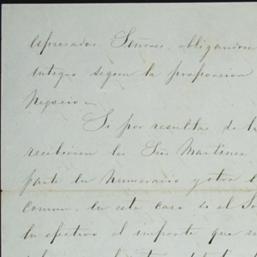 expresados Señores, obligandose
integro segun la proporcion
Negocio.
Si por resultas de la
recibieren los Sres Martinez
parte en numerario y otra
comun, en este caso de el
en efectivo el importe que